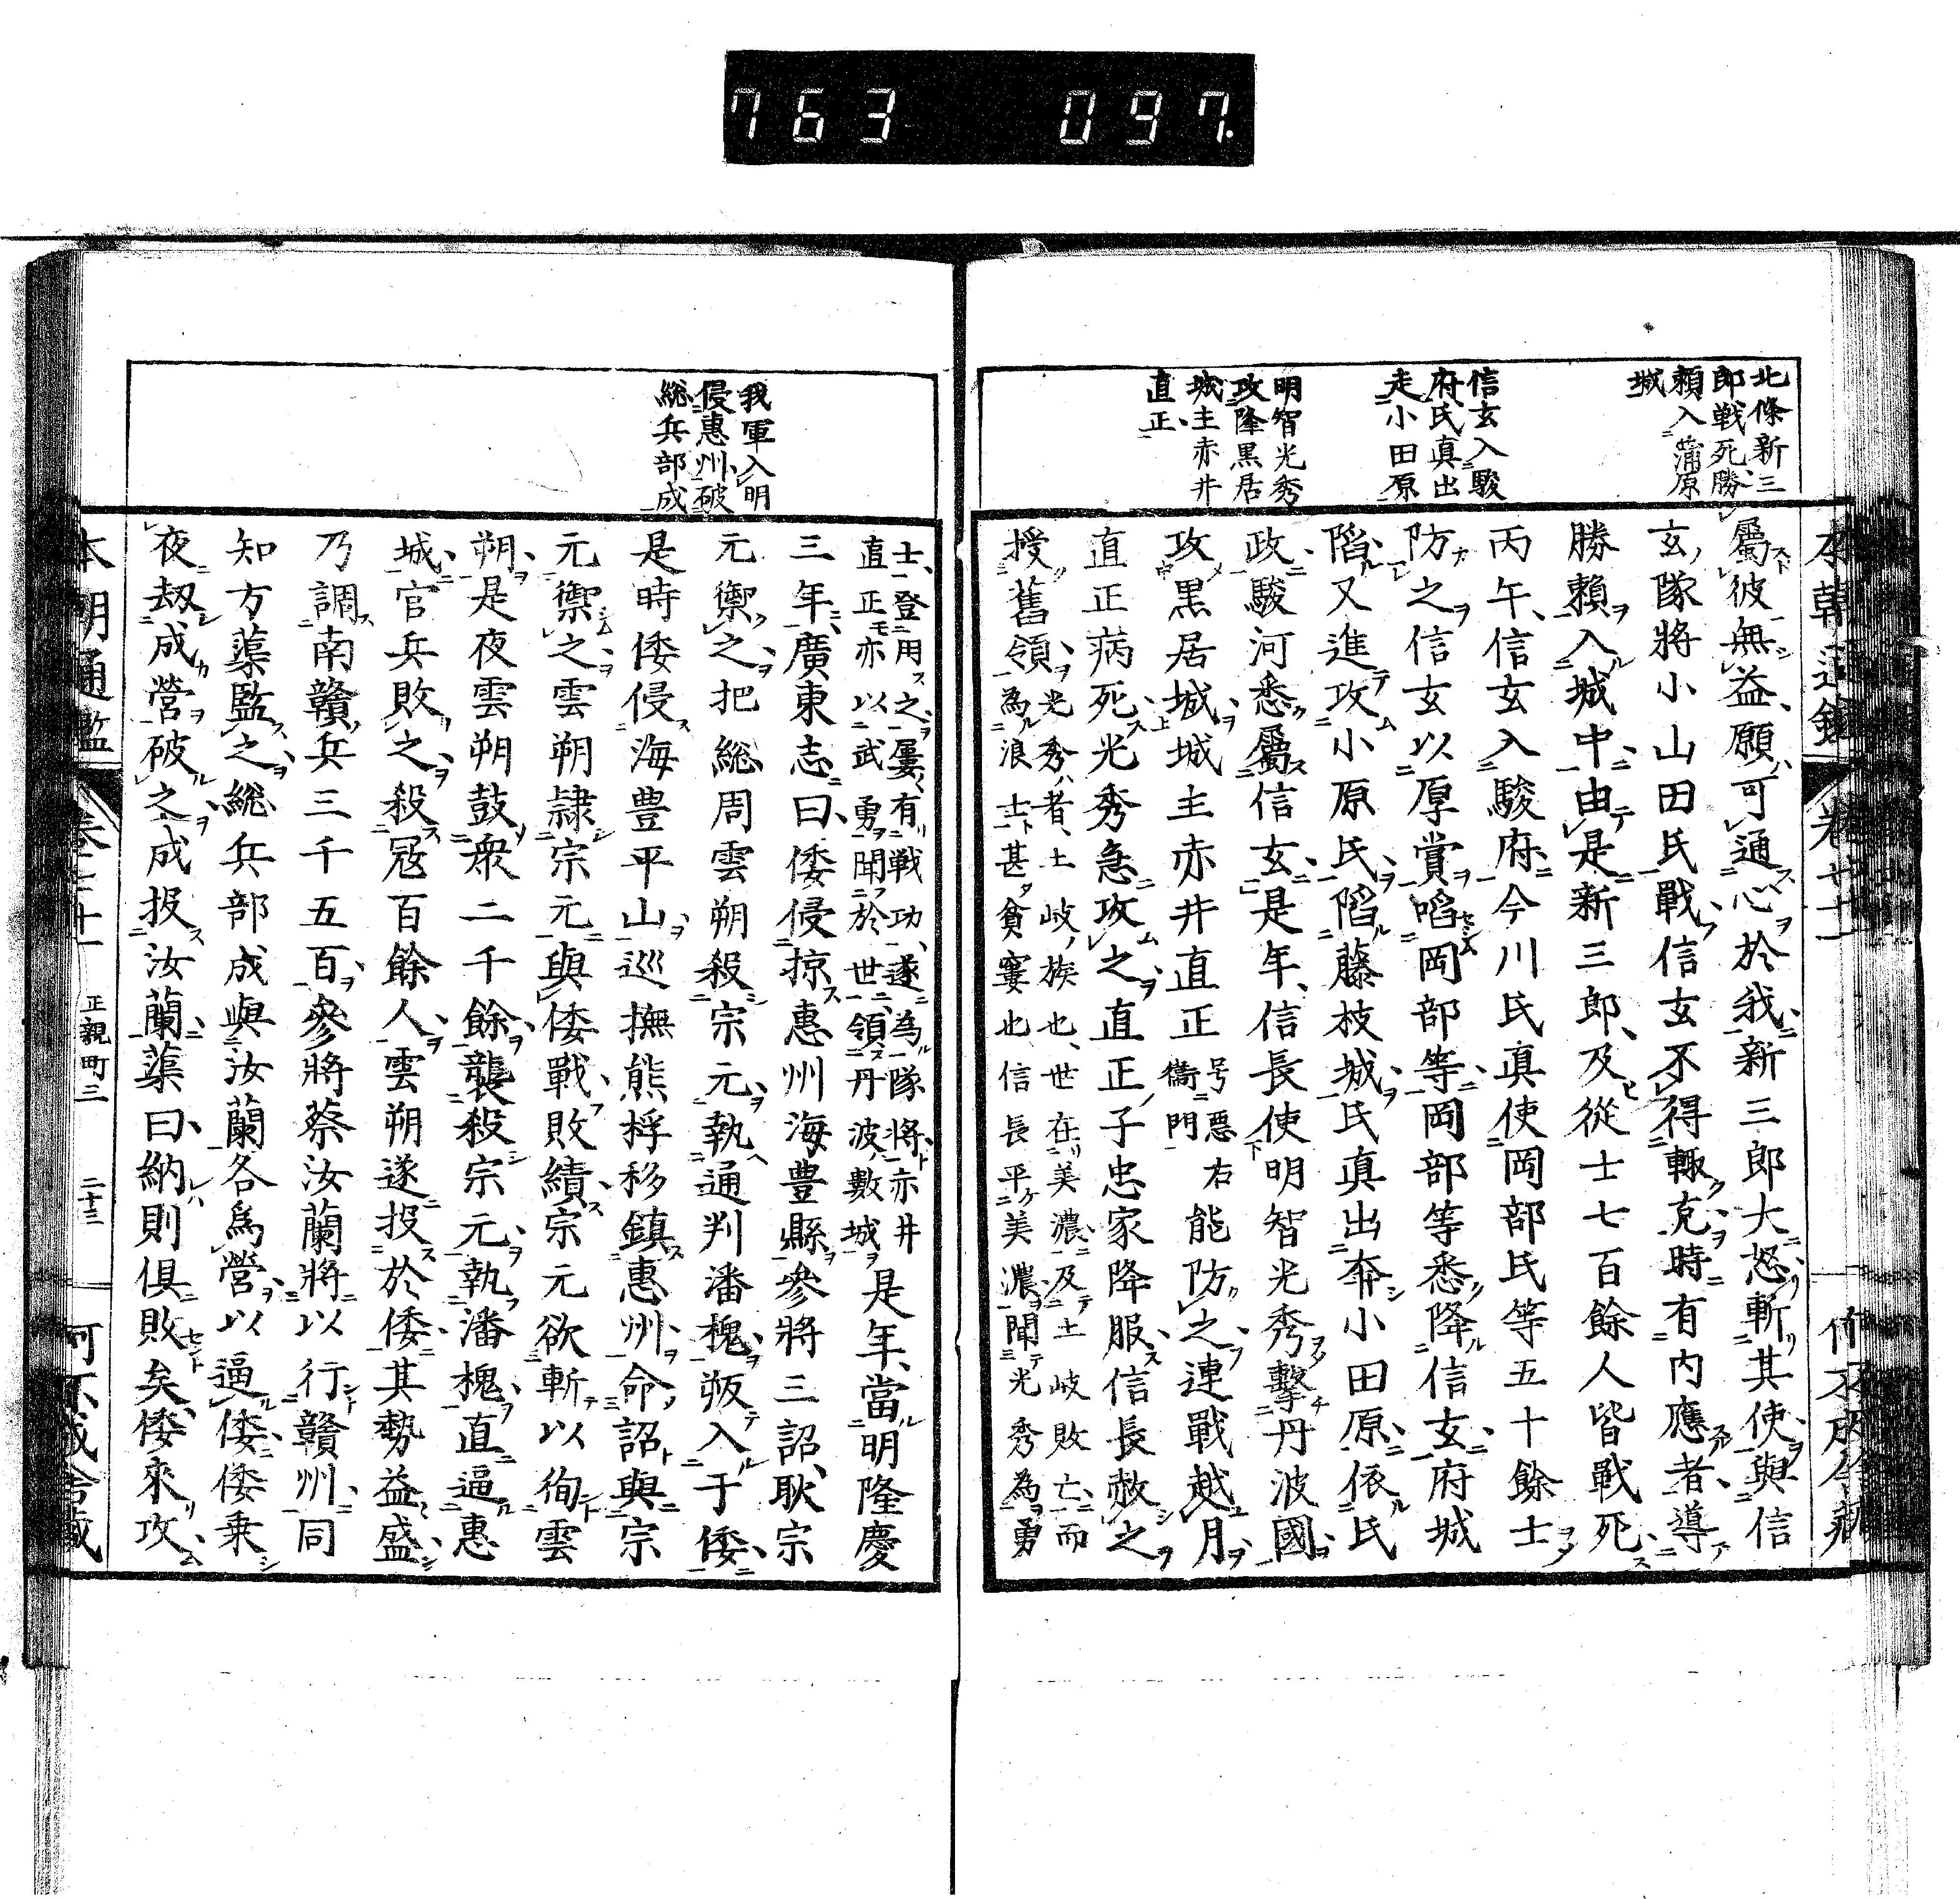 763 097.
北條新三
郎戦死勝
頼入蒲原
城
信玄入駿
府氏真出
走小田原
明智光秀
攻隆黒居
城主赤井
直正
屬彼無益願可通心於我新三郎大怒斬其使與信
玄隊將小山田氏戰信玄不得輙克時有内應者導
勝頼入城中由是新三郎及從士七百餘人皆戰死
丙午信玄入駿府今川氏真使岡部氏等五十餘士
防之信玄以厚賞啗岡部等岡部等悉降信玄府城
陷又進攻小原氏陷藤枝城氏真出奔小田原依氏
政駿河悉屬信玄是年信長使明智光秀擊丹波國
攻黒居城城主赤井直正号惡右
衞門能防之連戰越月
直正病死光秀急攻之直正子忠家降服信長赦之
授舊領光秀者土岐族也世在美濃及土岐敗亡而
為浪士甚貧窶也信長平美濃聞光秀為勇
我軍入明
侵惠州破
総兵部成
士登用之屢有戰功遂為隊將赤井
直正亦以武勇聞於世領丹波數城是年當明隆慶
三年廣東志曰倭侵掠惠州海豊縣參將三詔耿宗
元禦之把総周雲朔殺宗元執通判潘槐叛入于倭
是時倭侵海豊平山巡撫熊桴移鎮惠州命詔與宗
元禦之雲朔隷宗元與倭戰敗績宗元欲斬以徇雲
朔是夜雲朔鼓衆二千餘襲殺宗元執潘槐直逼惠
城官兵敗之殺冦百餘人雲朔遂投於倭其勢益盛
乃調南贛兵三千五百參將蔡汝蘭將以行贛州同
知方蕖監之総兵部成與汝蘭各為營以逼倭倭乗
夜刼成營破之成投汝蘭蕖曰納則俱敗矣倭來攻
本朝通鑑 卷 正親町三 二十三